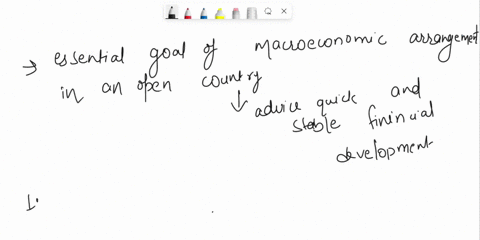 → essential goal of macroeconomic arrangement
in an open country
↓ advice quick and
stable finincial
development
1.